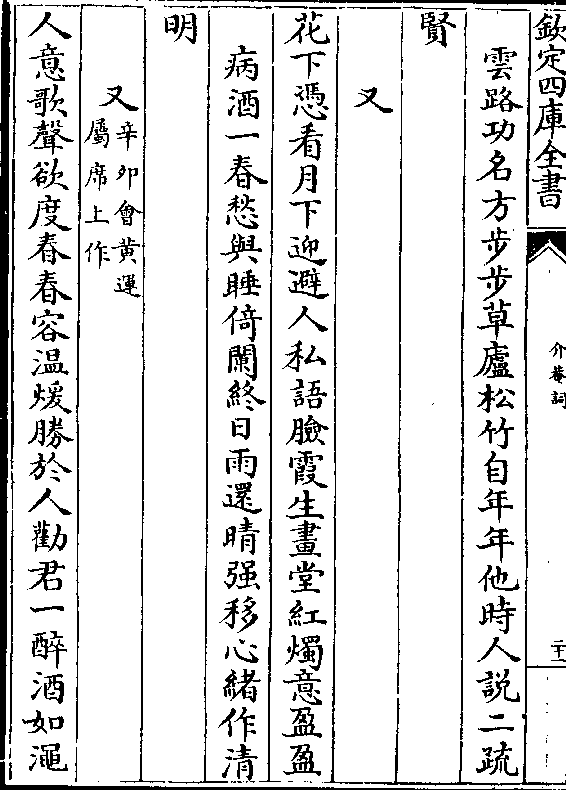 欽定四庫全書
介菴詞
二十一
雲路功名方步步草廬松竹自年年他時人説二疏
賢
又
花下憑看月下迎避人私語臉霞生畫堂紅燭意盈盈
病酒一春愁與睡倚闌終日雨還晴强移心緒作清
明
又辛卯會黄運
屬席上作
人意歌聲欲度春春容温煖勝於人勸君一醉酒如澠